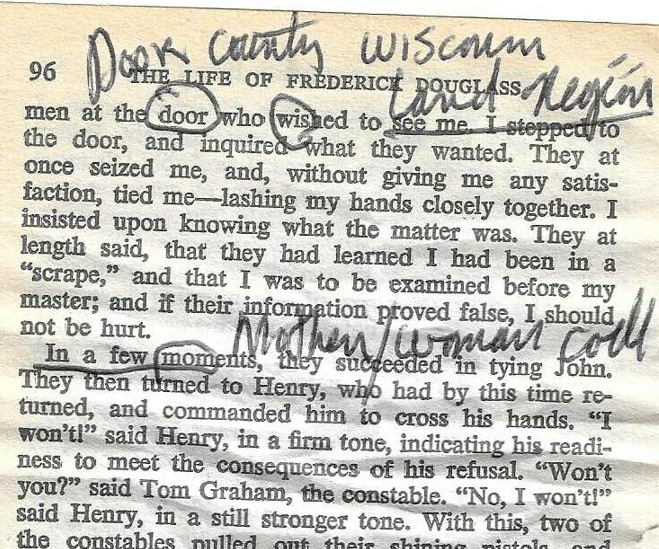 Door County Wisconsin
96 THE LIFE OF FREDERICK DOUGLASS
Land Region
men at the door who wished to see me. I stepped to
the door, and inquired what they wanted. They at
once seized me, and, without giving me any satis-
faction, tied me—lashing my hands closely together. I
insisted upon knowing what the matter was. They at
length said, that they had learned I had been in a
“scrape,” and that I was to be examined before my
master; and if their information proved false, I should
not be hurt.
Mother/woman code
In a few moments, they succeeded in tying John.
They then turned to Henry, who had by this time re-
turned, and commanded him to cross his hands. “I
won’t!” said Henry, in a firm tone, indicating his readi-
ness to meet the consequences of his refusal. “Won’t
you?” said Tom Graham, the constable. “No, I won’t!”
said Henry, in a still stronger tone. With this, two of
the constables pulled out their shining pistols, and